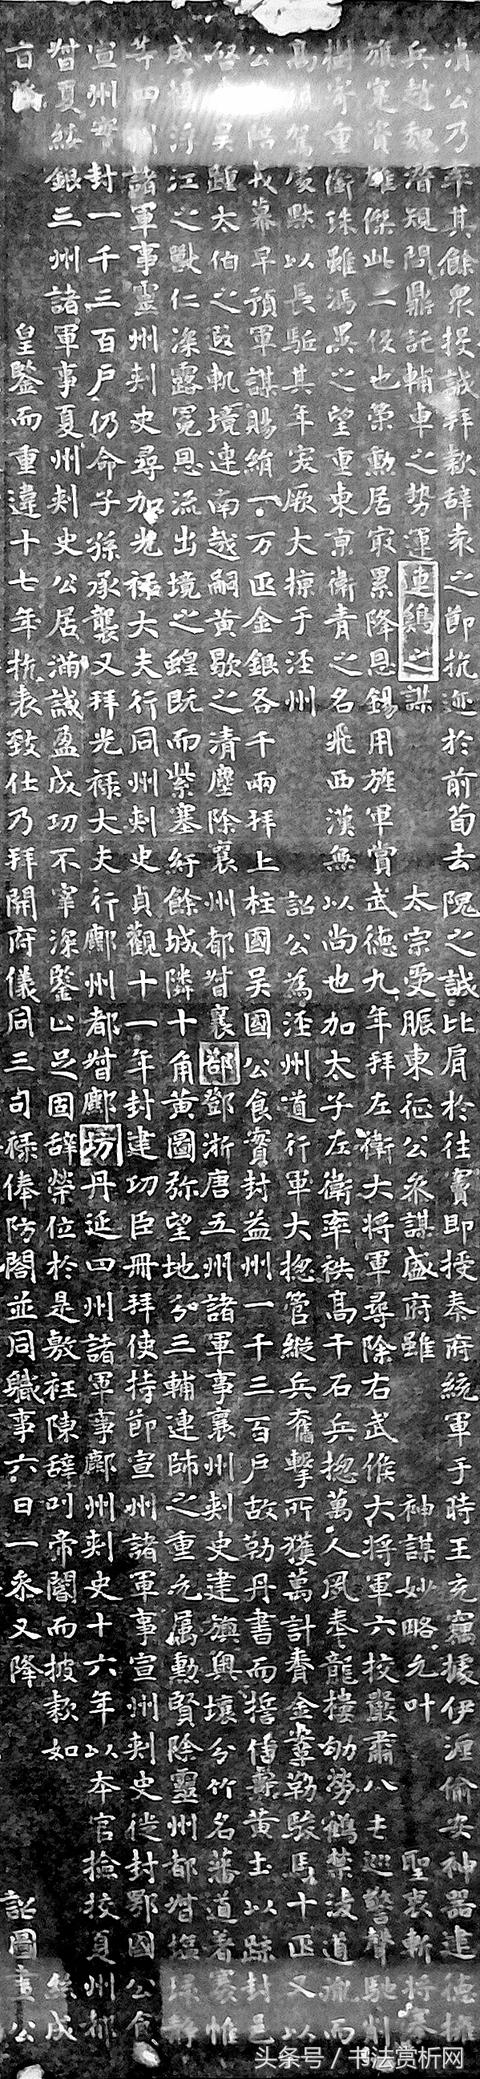 濆公乃率其餘衆投誠拜款辭袁之節抗迹於前荀去隗之誠比肩於往竇即授秦府統軍于時王充竊據伊瀍偷安神器建德擁
兵趙魏潛規問鼎託輔車之勢運連鷄之謀 太宗受脤東征公叅謀盛府雖 神謀妙略允叶 聖衷斬將搴
旗寔資雄傑此二役也策勳居最累降恩錫用旌軍賞武德九年拜左衛大將軍尋除右武候大將軍六校嚴肅八屯巡警聲馳
樹寄重衝珠雖馮異之望重東京衛青之名飛西漢無以尚也加太子左衛率秩高千石兵揔萬人夙奉龍樓劬勞鶴禁浚道流而
高 駕慶點以長駈其年突厥大掠于涇州 詔公爲涇州道行軍大揔管縱兵奮擊所獲萬計賚金鞶勒駿馬十匹又以
公陪戎幕早預軍謀賜絹一万匹金銀各千兩拜上柱國吴國公食實封益州一千三百戶故勒丹書而誓信錫黃土以疏封邑
啓吴踵太伯之遐軌境連南越嗣黃歇之清塵除襄州都督襄鄀鄧浙唐五州諸軍事襄州刾史建旟輿壤分竹名藩道著褰帷
成行江之獸仁深露冕恩流出境之蝗既而紫塞紆餘城隣十角黃圖弥望地分三輔連帥之重允属勳賢除靈州都督塩環静
等四州諸軍事靈州刾史尋加光祿大夫行同州刾史貞觀十一年封建功臣冊拜使持節宣州諸軍事宣州刾史徙封鄂國公食
宣州實封一千三百戶仍命子孫承襲又拜光祿大夫行鄜州都督鄜坊丹延四州諸軍事鄜州刾史十六年以本官撿挍夏州都
督夏綏銀三州諸軍事夏州刾史公居滿誡盈成功不宰深鑒止足固辭榮位於是敷衽陳辭叫帝閽而披款如絲成
皇鑒而重違十七年抗表致仕乃拜開府儀同三司祿俸防閤並同職事六日一叅又降 詔圖畫公
头条号 / 书法赏析网